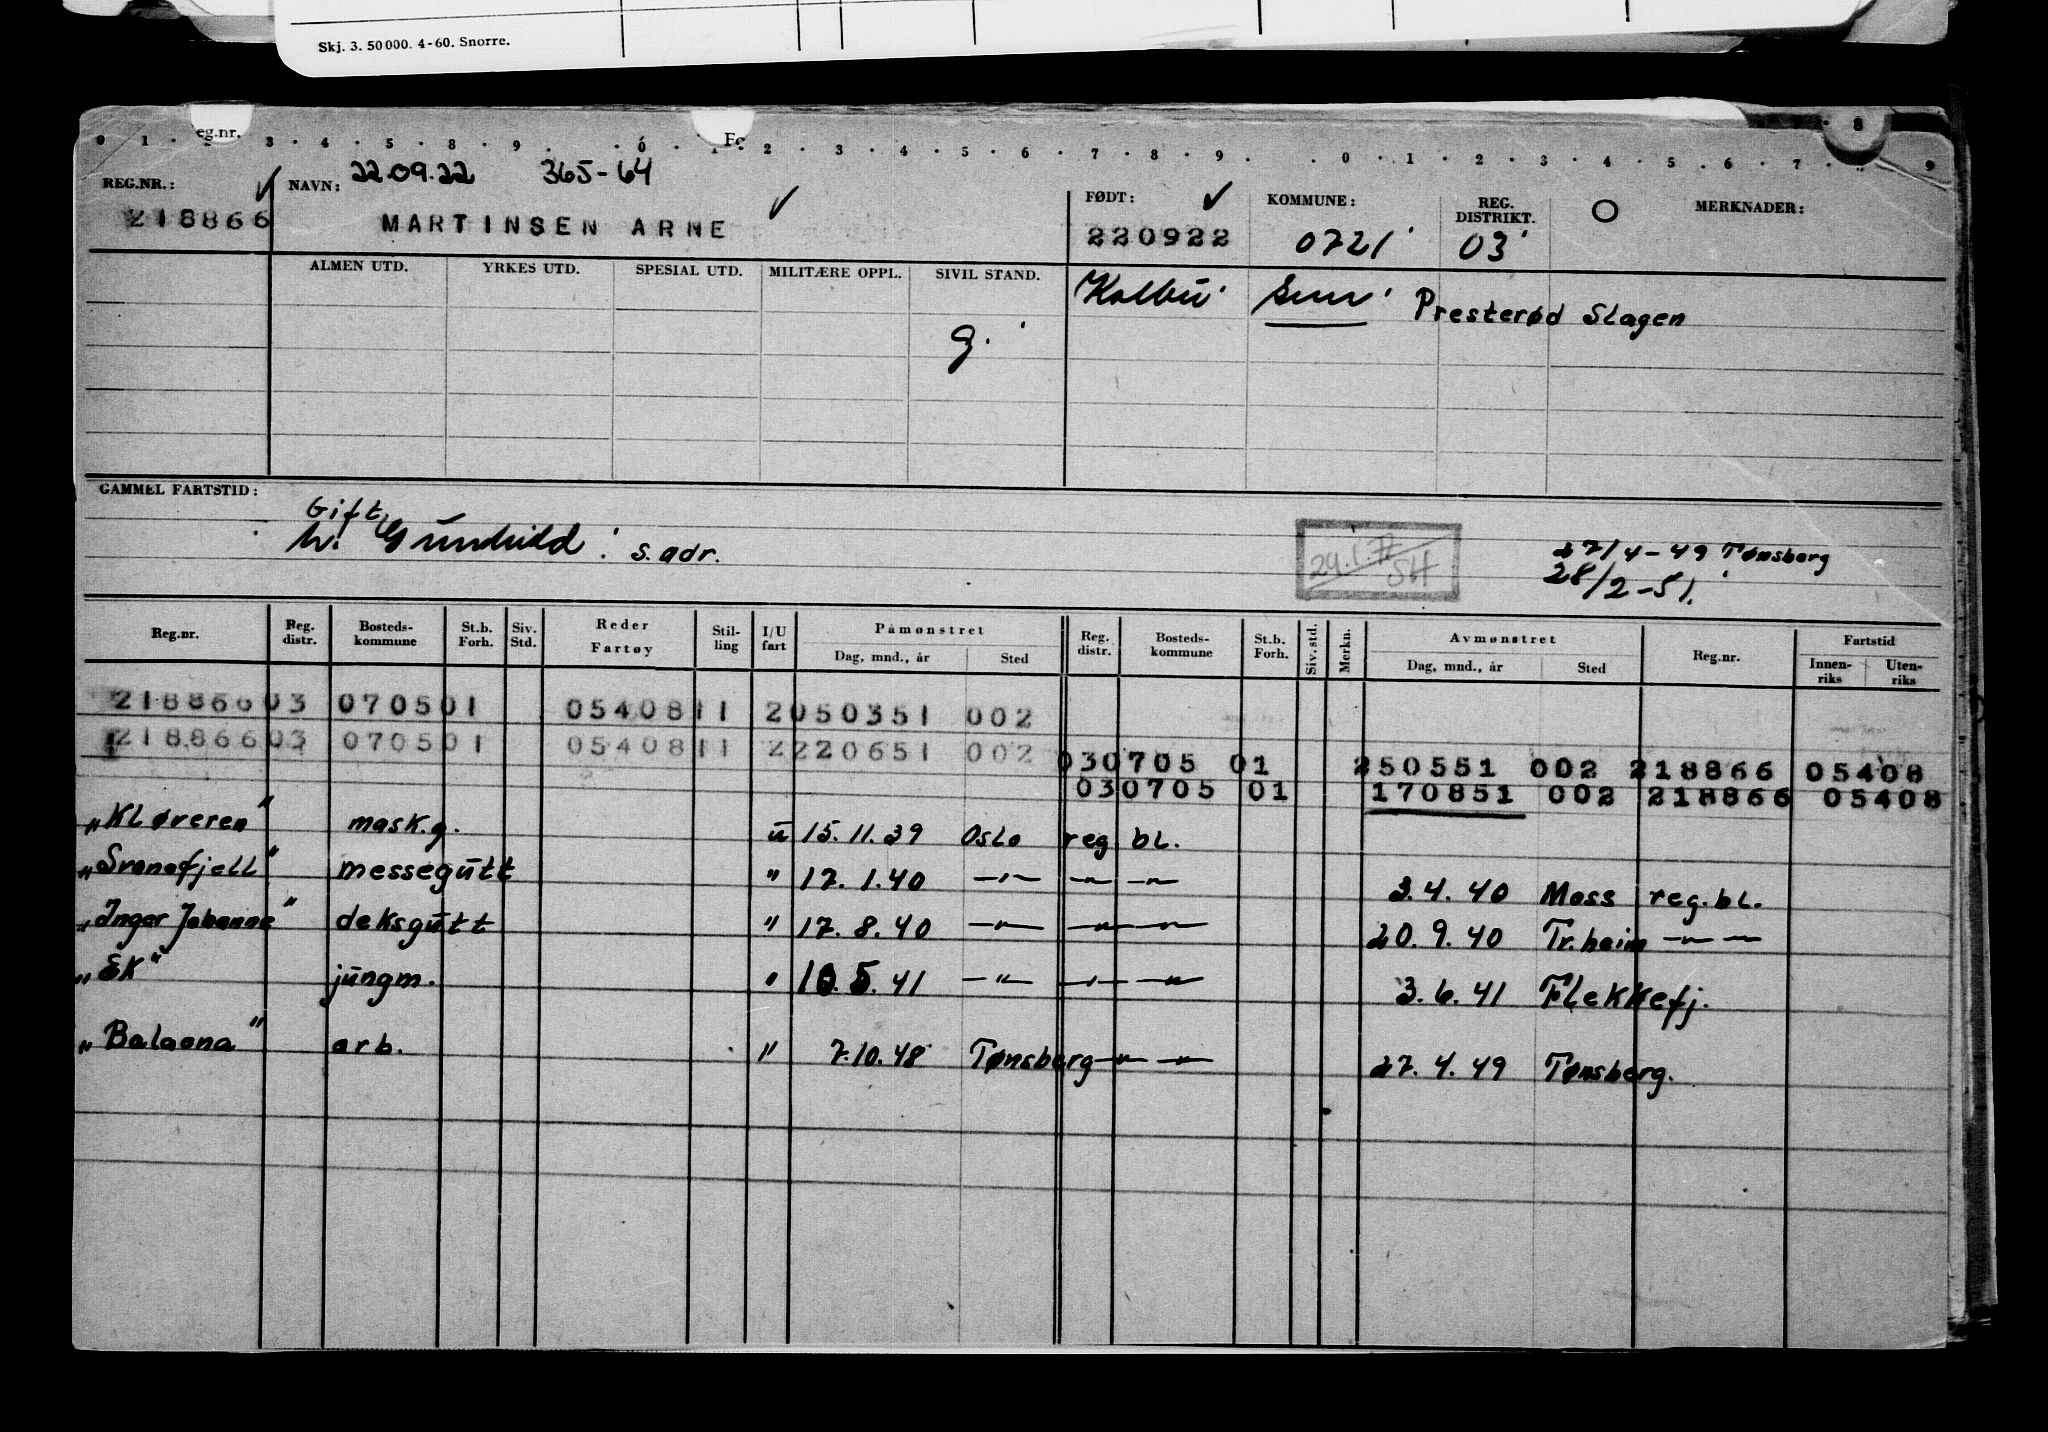 Skj. 3. 50 000. 4-60. Snorre.
eg.nr. Fo
0 1 2 3 4 5 8 9 0 1 2 3 4 5 6 7 8 9 0 1 2 3 4 5 6 7 8 9
22.09.22 365-64
REG.NR.: NAVN: FØDT: KOMMUNE: REG. DISTRIKT. O MERKNADER:
218866 MARTINSEN ARNE 220922 0721 03
ALMEN UTD. YRKES UTD. SPESIAL UTD. MILITÆRE OPPL. SIVIL STAND.
Kolbu Presterød Slagen
g.
GAMMEL FARTSTID:
Gift
h. Gunhild. s. adr.
SH
27/4-49 Tønsberg
28/2-51.
Reg.nr. Reg. distr. Bosteds-kommune St.b. Forh. Siv. Std. Reder Fartøy Stil-ling I/U fart Påmønstret Dag, mnd., år Sted Reg. distr. Bosteds-kommune St.b. Forh. Siv. std. Merkn. Avmønstret Dag, mnd., år Sted Reg.nr. Fartstid Innen-riks Uten-riks
218866 03 0705 01 05408 11 2 050351 002
218866 03 0705 01 05408 11 2 220651 002
03 0705 01 250551 002 218866 05408
03 0705 01 170851 002 218866 05408
"Kløveren" mask.g. u 15.11.39 Oslo reg bl.
"Svanefjell" messegutt " 17.1.40 -"- -"- -"- 3.4.40 Moss reg.bl.
"Inger Johanne" deksgutt " 17.8.40 -"- -"- -"- 20.9.40 Tr.heim -"- -"-
"EK" jungm. " 5.41 -"- -"- -"- 3.6.41 Flekkefj.
"Balaena" arb. " 7.10.48 Tønsberg -"- -"- 27.4.49 Tønsberg.